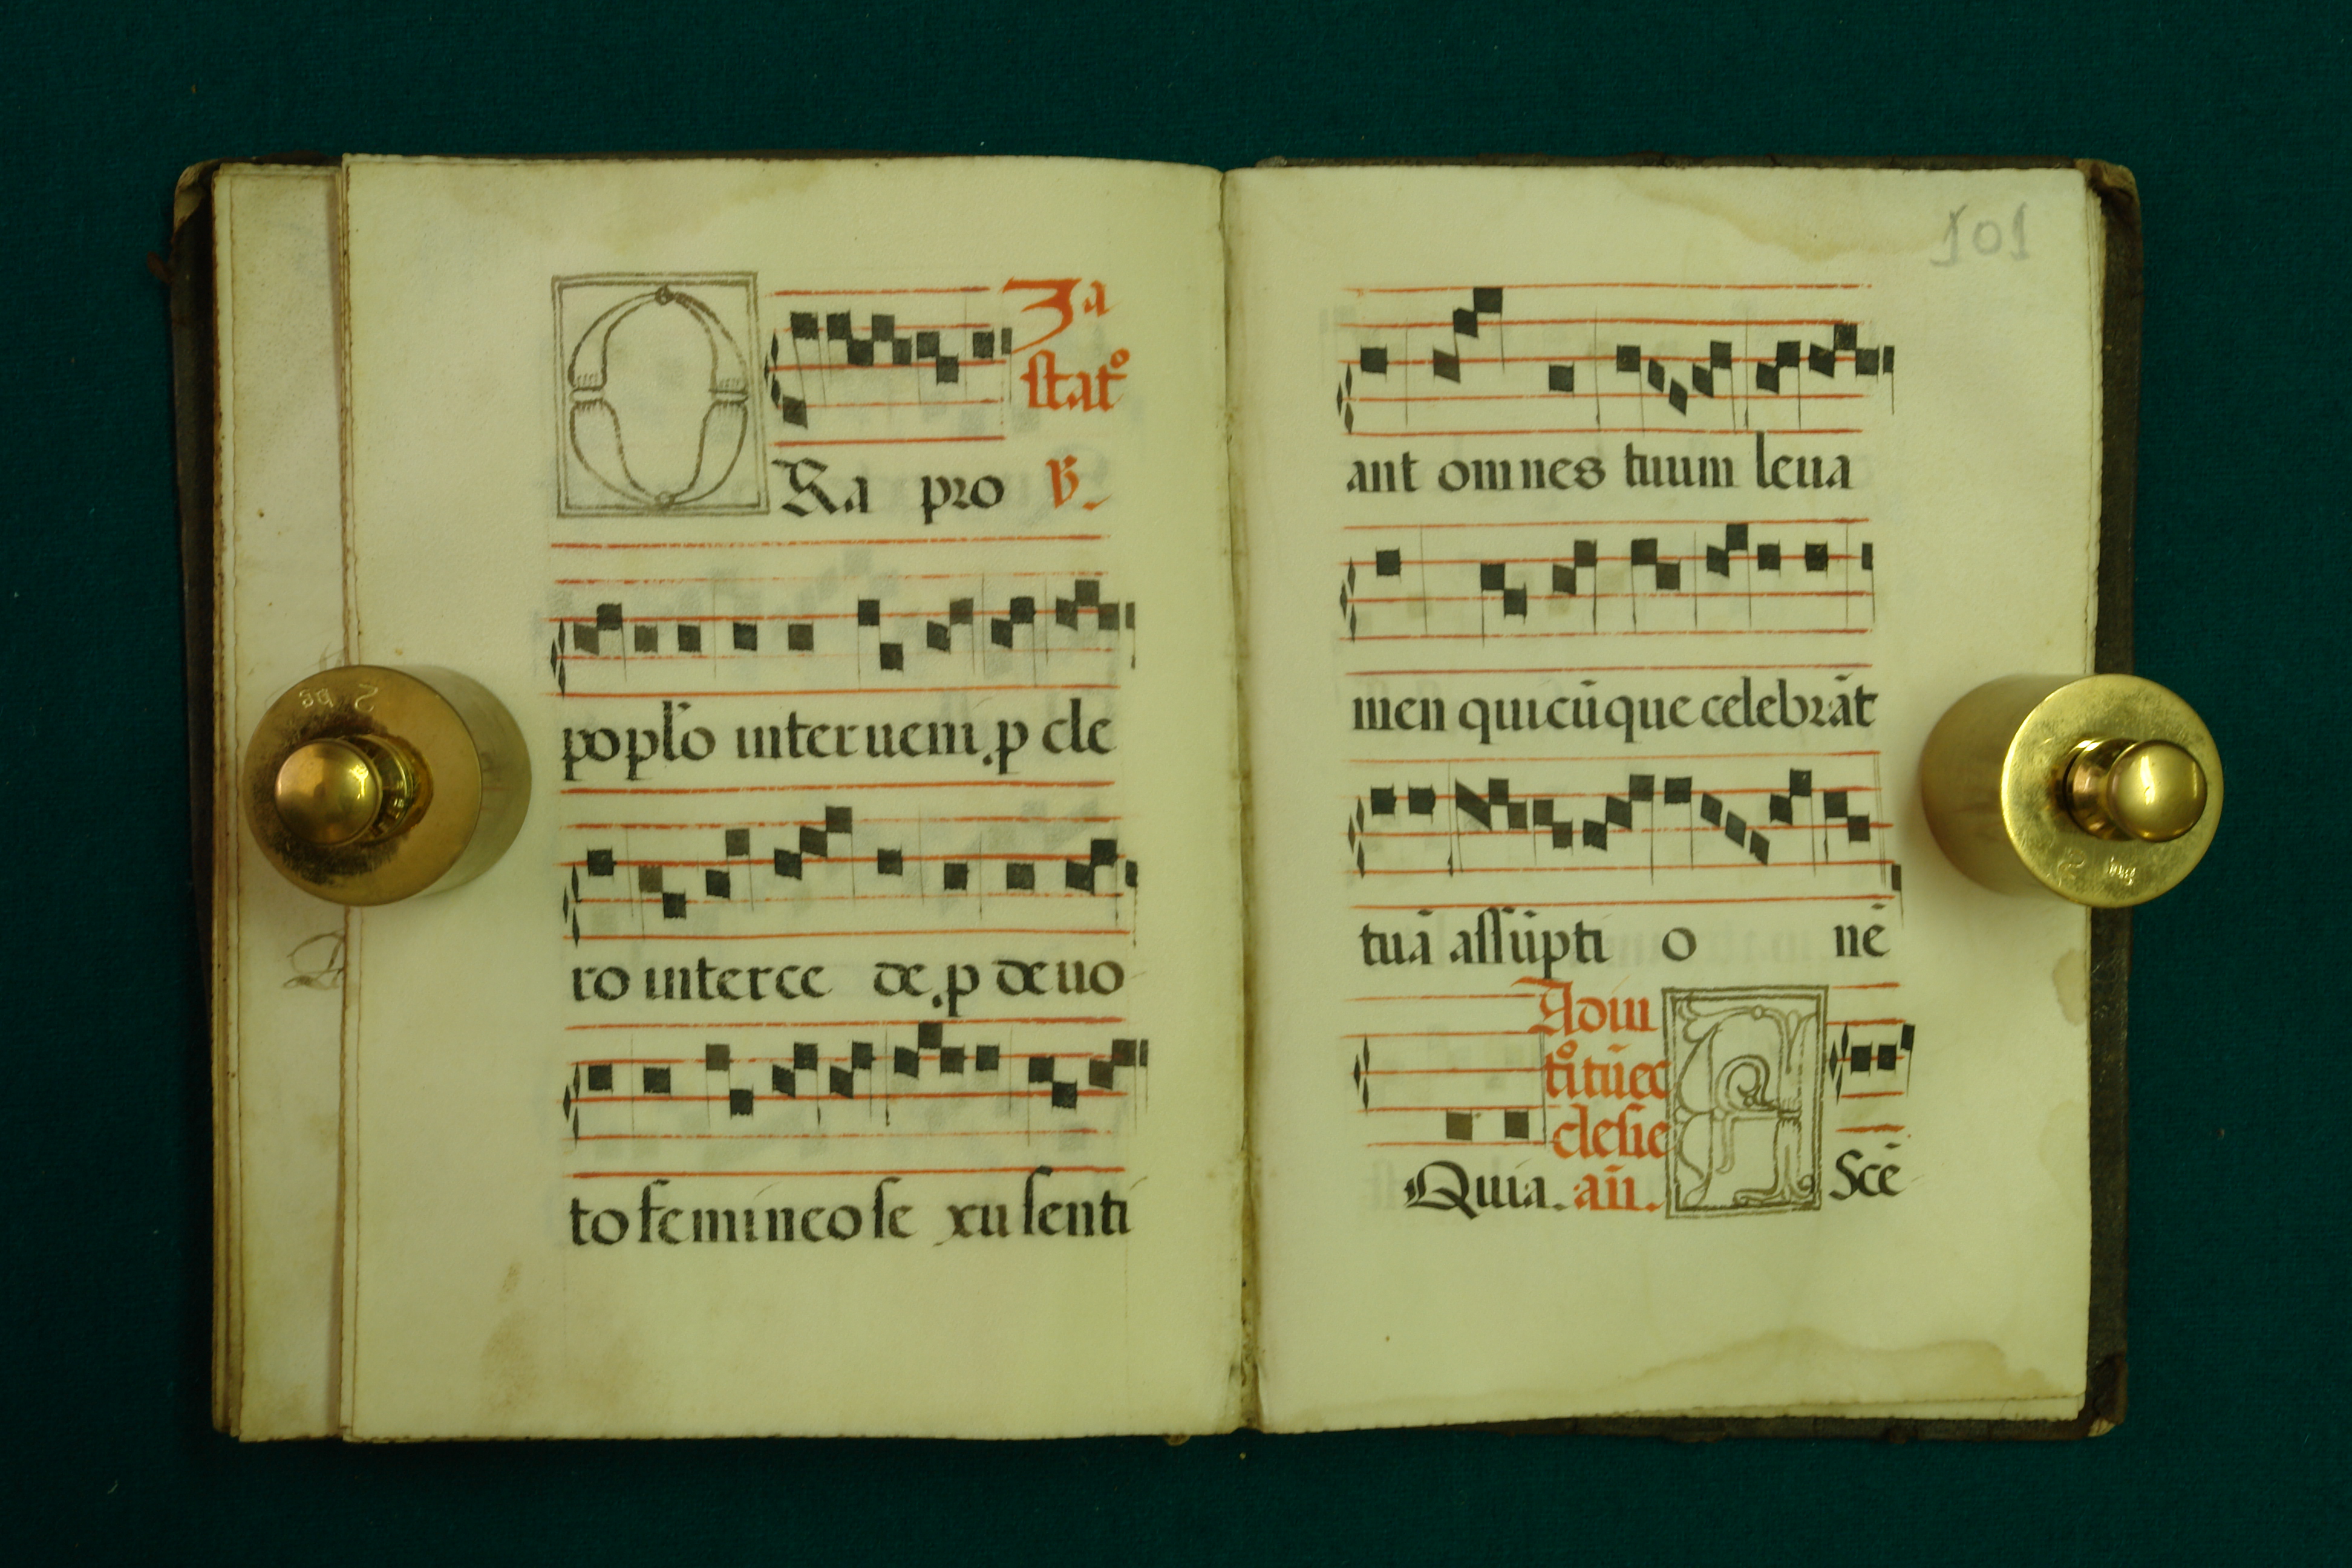 Ja
statº
ORa pro ℣.
poplo interueni. p cle
ro interce de. p deuo
to femineo se xu senti
101
ant omnes tuum leua
men quicūque celebrāt
tuā assūpti o nē
Adui
tºitūec
clesie
Quia. añ. AScē